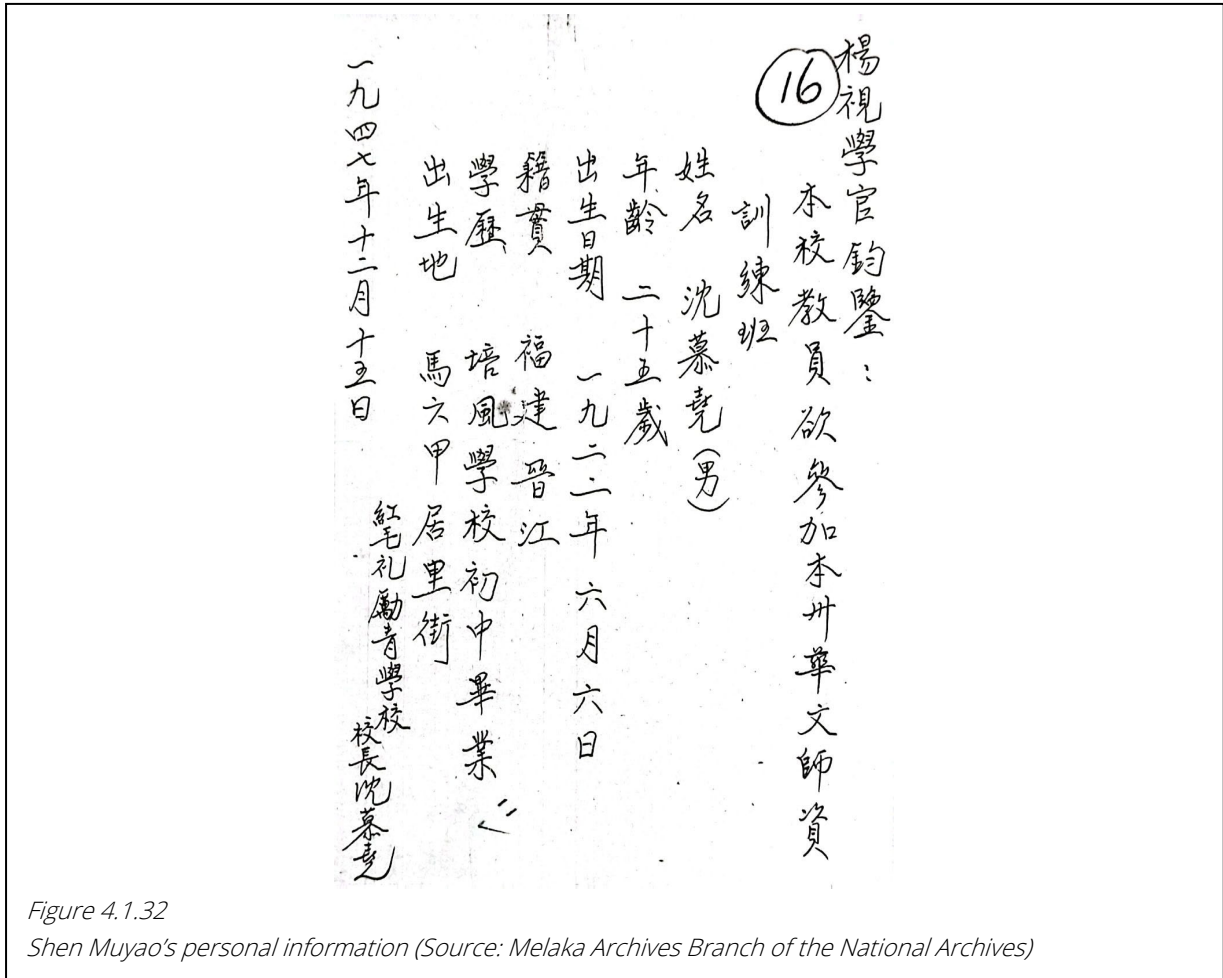 楊視學官鈞鑒：
16
本校教員欲參加本州華文師資
訓練班
姓名　沈慕堯（男）
年齡　二十五歲
出生日期　一九二二年六月六日
籍貫　福建晉江
學歷　培風學校初中畢業
出生地　馬六甲居里街
紅毛礼勵青學校
校長沈慕堯
一九四七年十二月十五日
Figure 4.1.32
Shen Muyao's personal information (Source: Melaka Archives Branch of the National Archives)